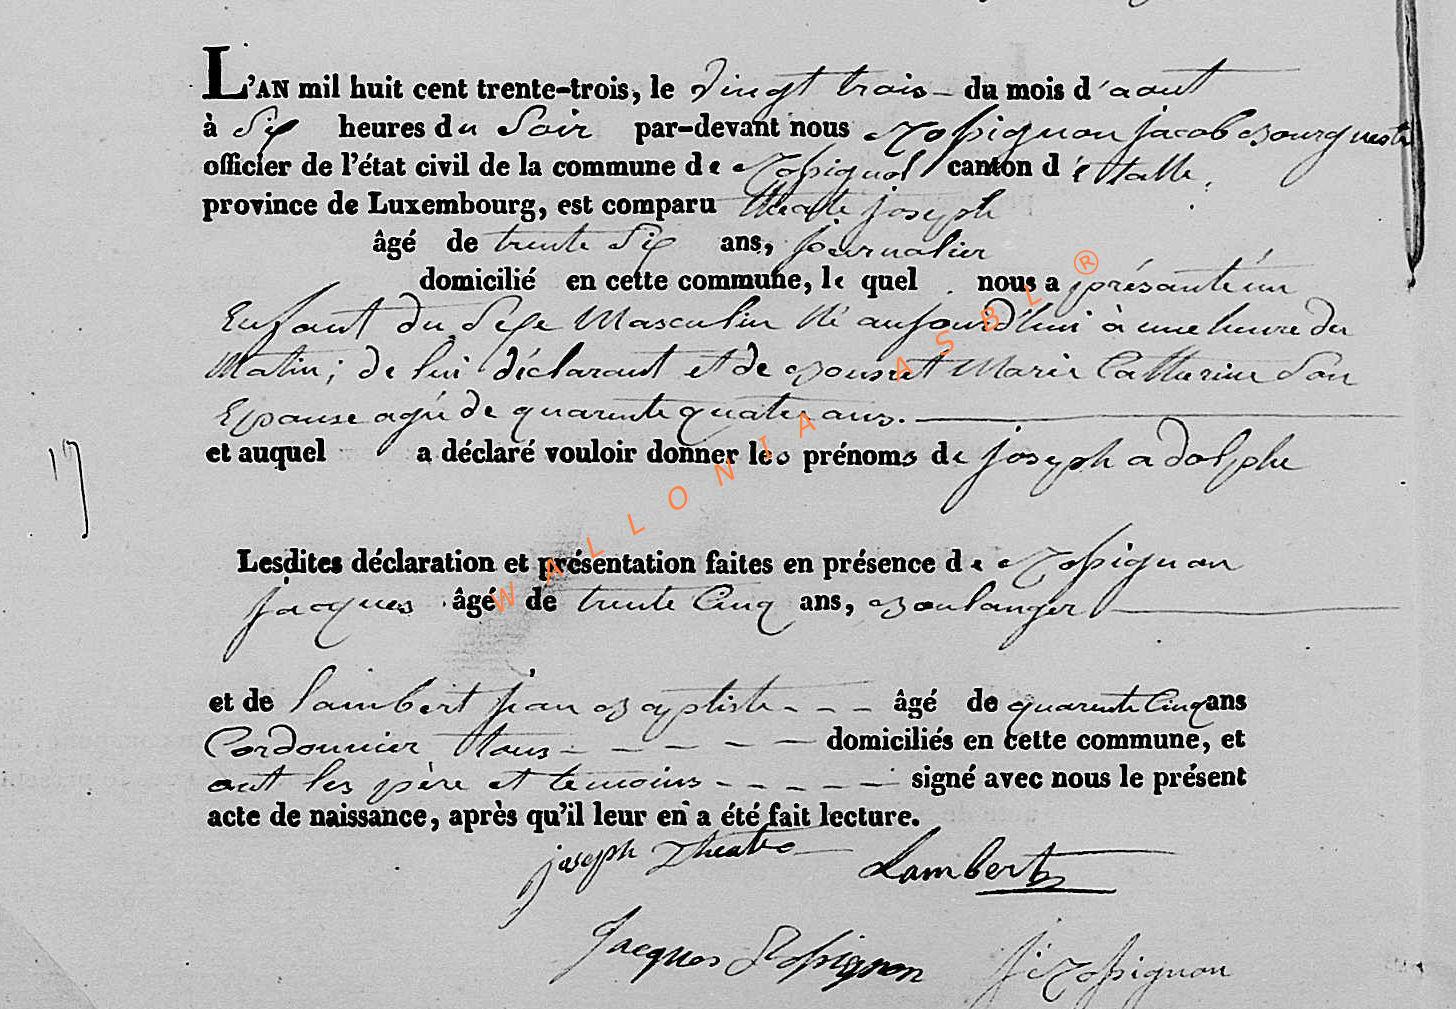 L'AN mil huit cent trente-trois, le Vingt trois du mois d'aout
à Six heures du Soir par-devant nous Rossignon jacob Bourgmestre
officier de l'état civil de la commune de Rossignol canton d'étalle,
province de Luxembourg, est comparu théatre joseph
âgé de trente Six ans, journalier
domicilié en cette commune, lequel nous a présanté un
Enfant du Sexe Masculin Né aujourd'hui à une heure du
Matin; de lui déclarant et de Marie Catherine Son
Epouse agée de quarente quatre ans.
et auquel a déclaré vouloir donner les prénoms de joseph adolphe
17
Lesdites déclaration et présentation faites en présence de Rossignon
jacques âgé de trente Cinq ans, Boulanger
et de lambert jean Baptiste - - - âgé de quarente Cinq ans
Cordonnier tous - - - - - domiciliés en cette commune, et
ont les père et temoins - - - - - signé avec nous le présent
acte de naissance, après qu'il leur en a été fait lecture.
joseph Théatre Lambert
Jacques Rossignon J: Rossignon
WALLONIA ASBL ®